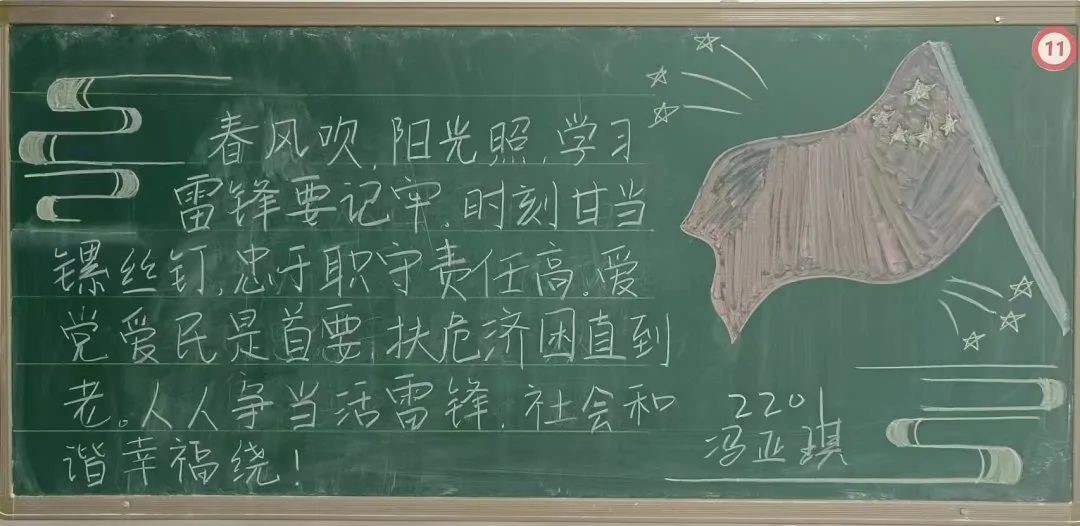 春风吹,阳光照,学习
雷锋要记牢,时刻甘当
镙丝钉,忠于职守责任高。爱
党爱民是首要,扶危济困直到
老。人人争当活雷锋,社会和
谐幸福绕!
2201
冯亚琪
11